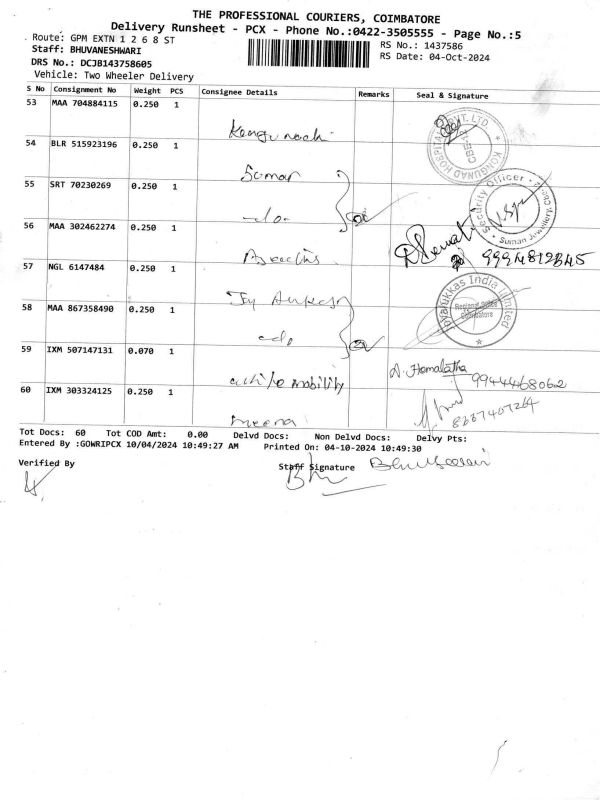 THE PROFESSIONAL COURIERS, COIMBATORE
Delivery Runsheet - PCX - Phone No.:0422-3505555 - Page No.:5
Route: GPM EXTN 1 2 6 8 ST
RS No.: 1437586
Staff: BHUVANESHWARI
RS Date: 04-Oct-2024
DRS No.: DCJB143758605
Vehicle: Two Wheeler Delivery
S No Consignment No Weight PCS Consignee Details Remarks Seal & Signature
53 MAA 704884115 0.250 1
KONGUNAD HOSPITAL PVT. LTD
54 BLR 515923196 0.250 1
Suman
55 SRT 70230269 0.250 1
-do-
Security Officer
Suman Jewellery
56 MAA 302462274 0.250 1
9994812345
57 NGL 6147484 0.250 1
Joyalukkas India Limited
Regional Office
Coimbatore
58 MAA 867358490 0.250 1
-do-
59 IXM 507147131 0.070 1
mobility
A. Hemalatha
9944468062
60 IXM 303324125 0.250 1
Meena
8287407264
Tot Docs: 60 Tot COD Amt: 0.00 Delvd Docs: Non Delvd Docs: Delvy Pts:
Entered By :GOWRIPCX 10/04/2024 10:49:27 AM Printed On: 04-10-2024 10:49:30
Verified By
Staff Signature